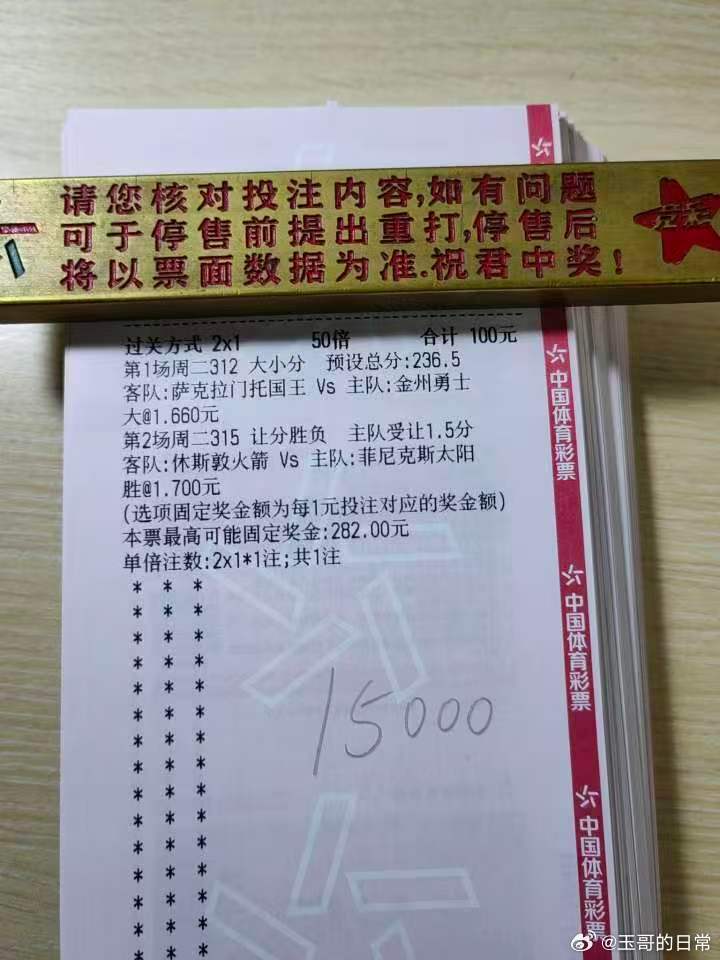 请您核对投注内容,如有问题
可于停售前提出重打,停售后
将以票面数据为准.祝君中奖!
竞彩
过关方式 2x1 50倍 合计 100元
第1场周二312 大小分 预设总分:236.5
客队:萨克拉门托国王 Vs 主队:金州勇士
大@1.660元
第2场周二315 让分胜负 主队受让1.5分
客队:休斯敦火箭 Vs 主队:菲尼克斯太阳
胜@1.700元
(选项固定奖金额为每1元投注对应的奖金额)
本票最高可能固定奖金:282.00元
单倍注数:2x1*1注;共1注
* * *
* * *
* * *
* * *
* * *
* * *
* * *
* * *
* * *
* * *
* * *
* * *
* * *
* * *
* * *
15000
中国体育彩票
中国体育彩票
中国体育彩票
@玉哥的日常